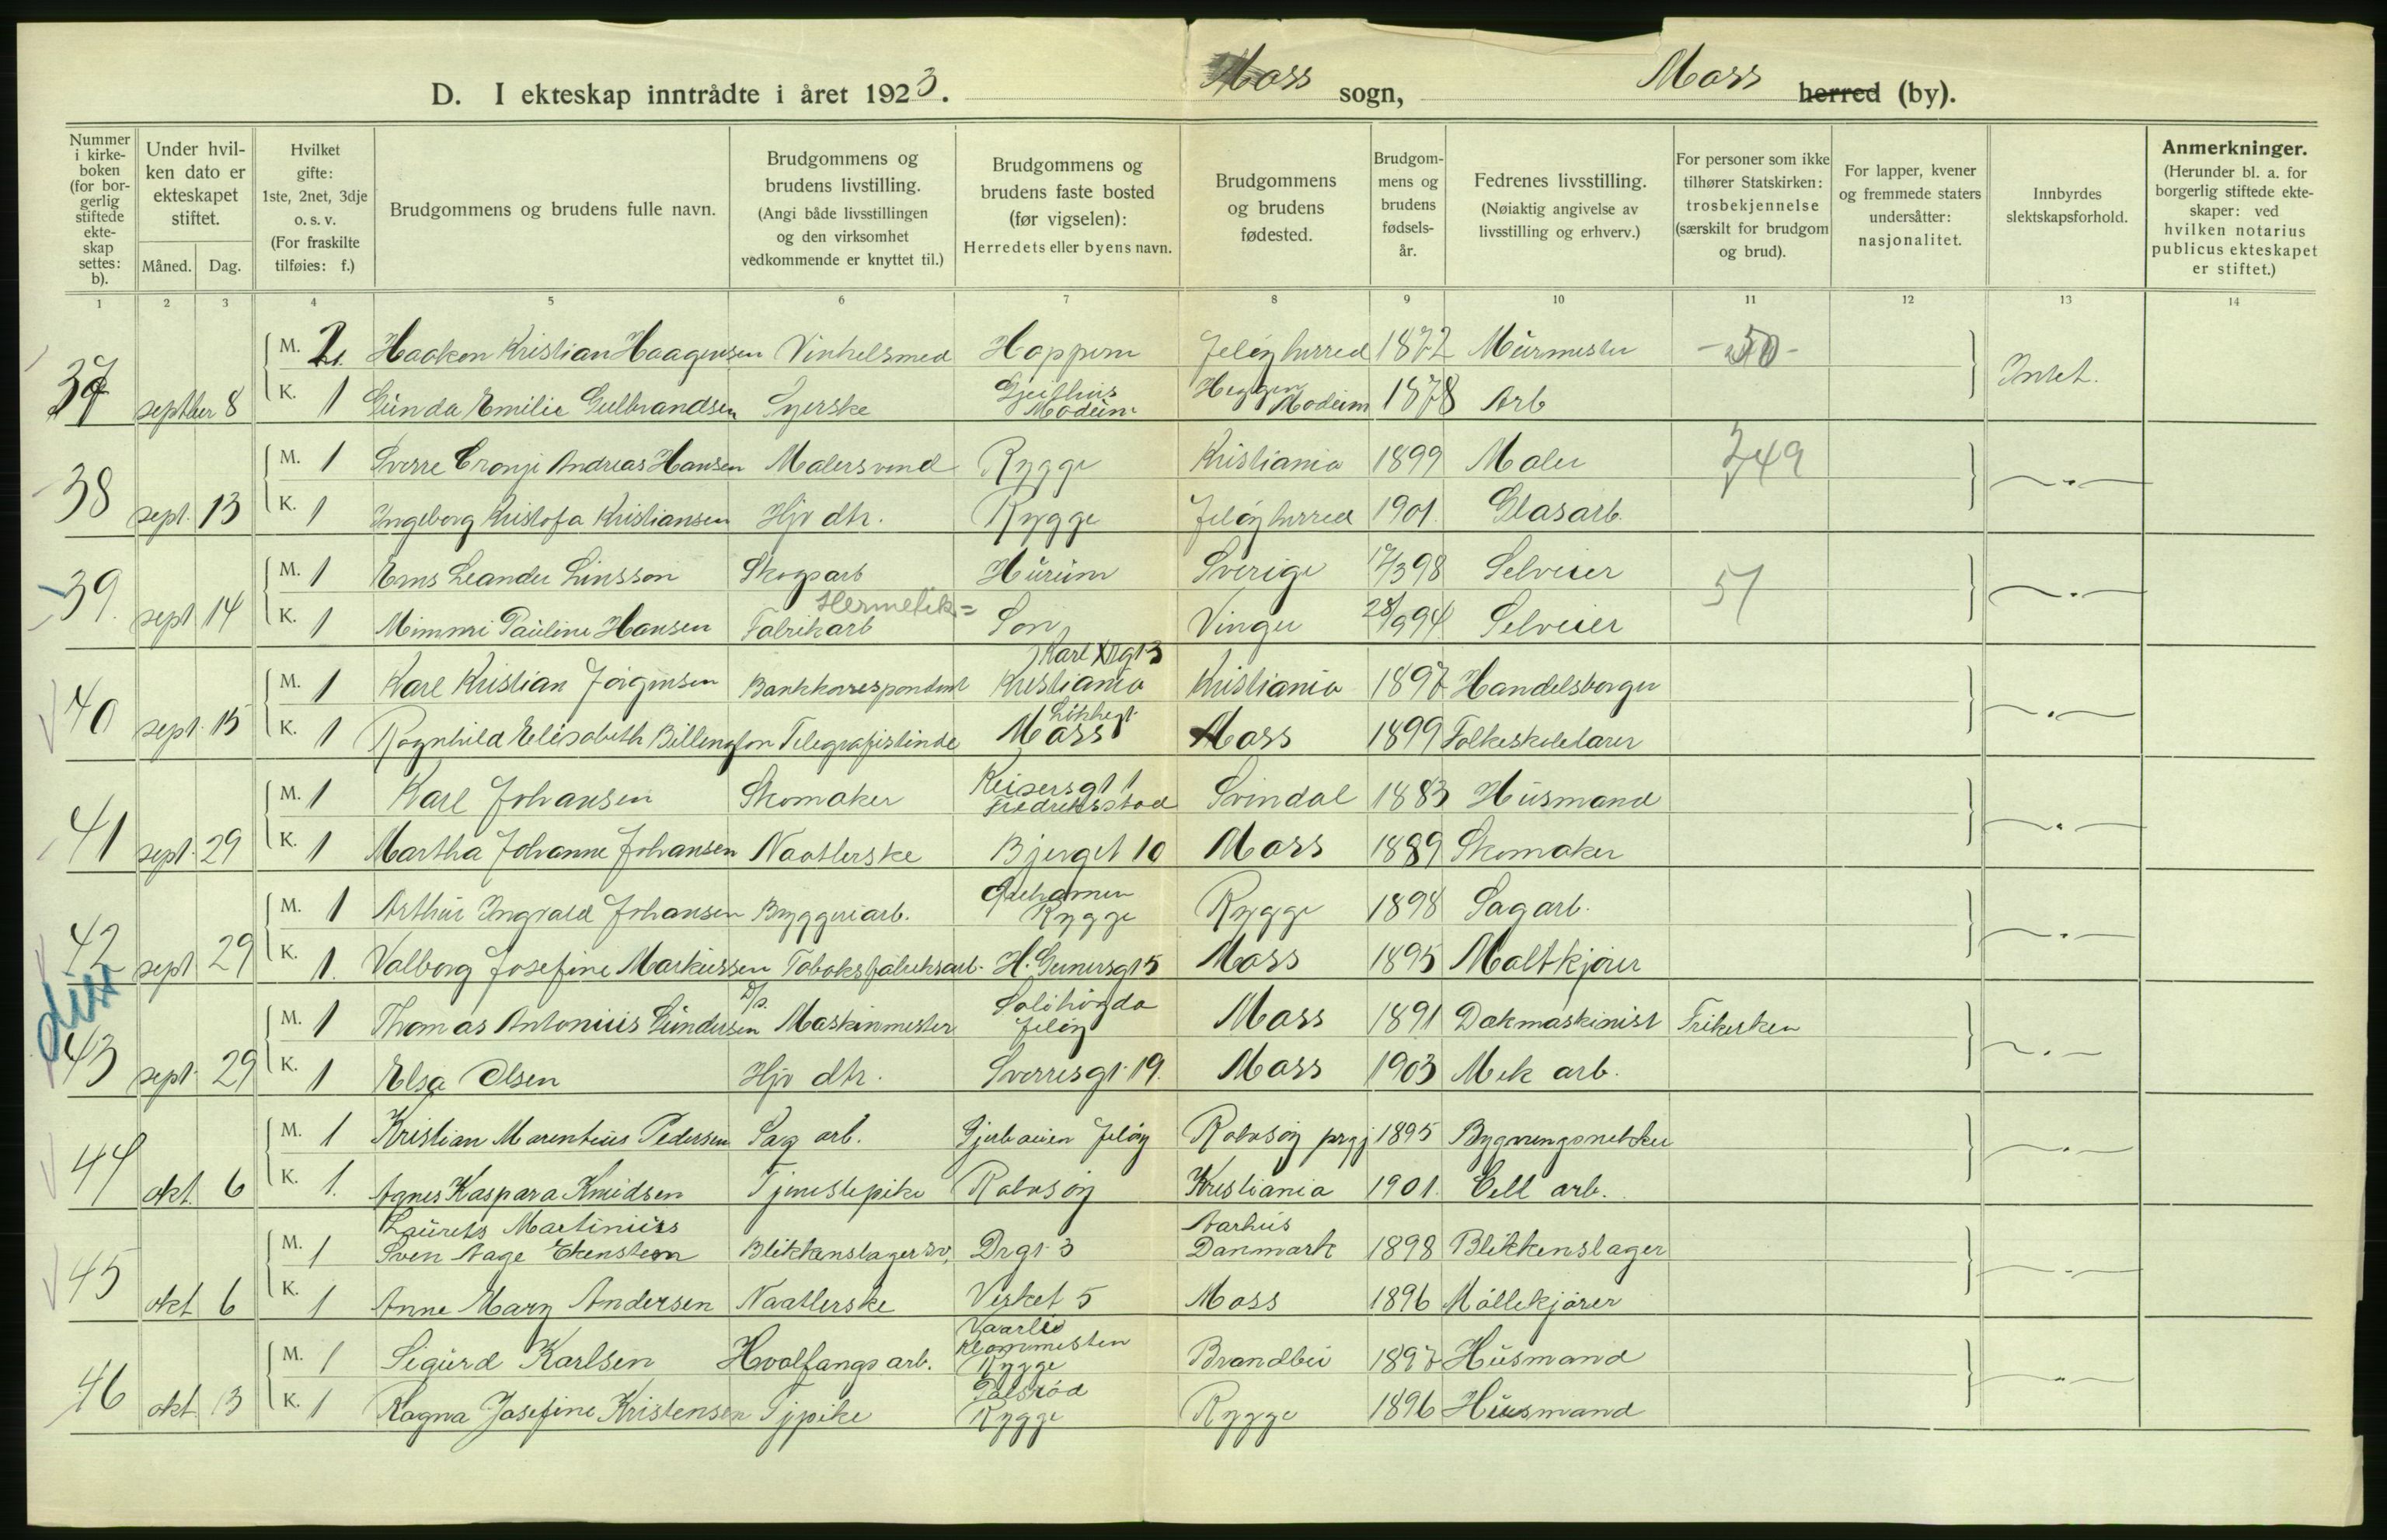 D. I ekteskap inntrådte i året 1923. Moss sogn, Moss herred (by).
Nummer i kirkeboken (for borgerlig stiftede ekteskap settes: b).
Under hvilken dato er ekteskapet stiftet.
Måned. Dag.
Hvilket gifte: 1ste, 2net, 3dje o. s. v. (For fraskilte tilføies: f.)
Brudgommens og brudens fulle navn.
Brudgommens og brudens livstilling. (Angi både livsstillingen og den virksomhet vedkommende er knyttet til.)
Brudgommens og brudens faste bosted (før vigselen): Herredets eller byens navn.
Brudgommens og brudens fødested.
Brudgommens og brudens fødselsår.
Fedrenes livsstilling. (Nøiaktig angivelse av livsstilling og erhverv.)
For personer som ikke tilhører Statskirken: trosbekjennelse (særskilt for brudgom og brud).
For lapper, kvener og fremmede staters undersåtter: nasjonalitet.
Innbyrdes slektskapsforhold.
Anmerkninger. (Herunder bl. a. for borgerlig stiftede ekteskaper: ved hvilken notarius publicus ekteskapet er stiftet.)
1 2 3 4 5 6 7 8 9 10 11 12 13 14
M. 2 Haakon Kristian Haagensen Vinkelsmed Hoppern Jeløy herred 1872 Mürmester
37 septber 8 K. 1 Günda Emilie Gulbrandsen Syerske Gjeithus Modüm Heggen Modum 1878 Arb Intet.
M. 1 Sverre Cronje Andreas Hansen Malersvend Rygge Kristiania 1899 Maler 349
38 sept. 13 K. 1 Ingeborg Kristofa Kristiansen Hjv dtr. Rygge Jeløy herred 1901. Glasarb.
M. 1 Erns Leander Linsson Skogsarb Hürüm Sverige 17/3 98 Selveier 51
39. sept 14 K. 1 Mimmi Paüline Hansen Hermetik= Fabrikarb Son Vinger 28/9 94 Selveier
M. 1 Karl Kristian Jörgensen Bankkorrespondent Karl XII gt 3 Kristiania Kristiania 1897 Handelsborger
40 sept. 15 K. 1 Ragnhild Elisabeth Billington Telegrafistinde Moss Moss 1899 Folkeskolelærer
M. 1 Karl Johansen Skomaker Keisersgt 1 Fredriksstad Svindal 1883 Hüsmand
41 sept. 29 K. 1 Martha Johanne Johansen Naatlerske Bjerget 10 Moss 1889 Skomaker
M. 1 Arthür Ingvald Johansen Bryggeriarb. Rygge Rygge 1898 Sagarb.
42 sept 29 K. 1. Valborg Josefine Markussen Tobaksfabrikarb. H. Gernersgt 5 Moss 1895 Maltkjører
M. 1 Thomas Antonius Gündersen D/s. Maskinmester Solihögda Jeløy Moss 1891 Dækmaskinist Frikirken
43 sept. 29 K. 1 Elsa Olsen Hjv dtr. Sverresgt. 19. Moss 1903 Mek arb.
M. 1 Kristian Marentius Pedersen Sag arb. Jeløy Rolvsøy prgj 1895 Bygningsnekker
44 okt. 6 K. 1. Agnes Kaspara Knüdsen Tjenestepike Rolvsøy Kristiania 1901. Cell arb.
M. 1 Laürets Martinüss Sven Aage Ekenstein Blikkenslagersv. Drgt. 3 Aarhüs Danmark 1898 Blikkenslager
45 okt 6 K. 1 Anne Mary Andersen Naatlerske Verket 5 Moss 1896 Möllekjører
M. 1 Sigürd Karlsen Hvalfangsarb. Vaarlid Klommesten Rygge Brandbu 1897 Hüsmand
46 okt 13 K. 1 Ragna Josefine Kristensen Tjpike Rygge Rygge 1896 Hüsmand